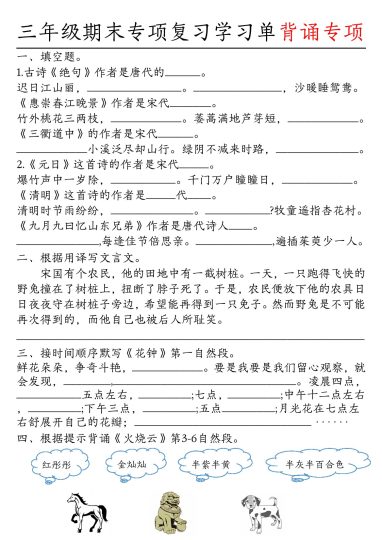 三年级期末专项复习学习单背诵专项
一、填空题。
1.古诗《绝句》作者是唐代的______。
迟日江山丽，____________。____________，沙暖睡鸳鸯。
《惠崇春江晚景》作者是宋代______。
竹外桃花三两枝，____________。蒌蒿满地芦芽短，____________。
《三衢道中》的作者是宋代______。
____________小溪泛尽却山行。绿阴不减来时路，____________。
2.《元日》这首诗的作者是宋代______。
爆竹声中一岁除，____________。千门万户曈曈日，____________。
《清明》这首诗的作者是____代____。
清明时节雨纷纷，____________。____________?牧童遥指杏花村。
《九月九日忆山东兄弟》作者是唐代诗人____。
____________,每逢佳节倍思亲。____________,遍插茱萸少一人。
二、根据用译写文言文。
宋国有个农民，他的田地中有一截树桩。一天，一只跑得飞快的
野兔撞在了树桩上，扭断了脖子死了。于是，农民便放下他的农具日
日夜夜守在树桩子旁边，希望能再得到一只兔子。然而野兔是不可能
再次得到的，而他自己也被后人所耻笑。
三、接时间顺序默写《花钟》第一自然段。
鲜花朵朵，争奇斗艳，____________。要是我要是我们留心观察，就
会发现，____________，____________。凌晨四点，
____________五点左右，____________;七点，____________;中午十二点左右
，____________;下午三点，____________;五点____________;月光花在七点左
右舒展开自己的花瓣；____________ ······
四、根据提示背诵《火烧云》第3-6自然段。
红彤彤 金灿灿 半紫半黄 半灰半百合色